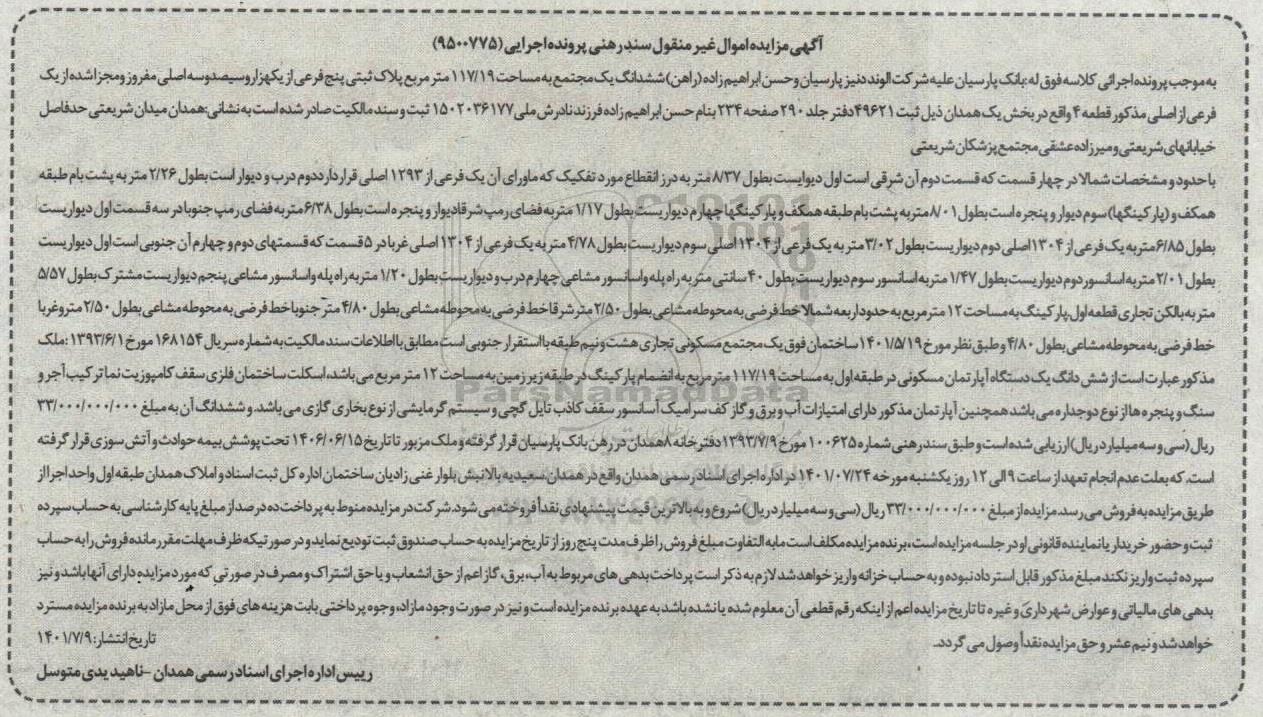 آگهی مزایده اموال غیر منقول سند رهنی پرونده اجرایی (۹۵۰۰۷۷۵)
به موجب پرونده اجرائی کلاسه فوق له: بانک پارسیان علیه شرکت الوند دنیز پارسیان و حسن ابراهیم زاده (راهن) ششدانگ یک مجتمع به مساحت ۱۱۷/۱۹ متر مربع پلاک ثبتی پنج فرعی از یکهزار و سیصد و سه اصلی مفروز و مجزا شده از یک
فرعی از اصلی مذکور قطعه ۴ واقع در بخش یک همدان ذیل ثبت ۴۹۶۲۱ دفتر جلد ۲۹۰ صفحه ۲۳۴ بنام حسن ابراهیم زاده فرزند نادرش ملی ۱۵۰۲۰۳۶۱۷۷ ثبت و سند مالکیت صادر شده است به نشانی: همدان میدان شریعتی حد فاصل
خیابانهای شریعتی و میرزاده عشقی مجتمع پزشکان شریعتی
با حدود و مشخصات شمالا در چهار قسمت که قسمت دوم آن شرقی است اول دیوایست بطول ۸/۳۷ متر به درز انقطاع مورد تفکیک که ماورای آن یک فرعی از ۱۲۹۳ اصلی قرار دارد دوم درب و دیوار است بطول ۲/۲۶ متر به پشت بام طبقه
همکف و (پارکینگها) سوم دیوار و پنجره است بطول ۸/۰۱ متر به پشت بام طبقه همکف و پارکینگها چهارم دیواریست بطول ۱/۱۷ متر به فضای رمپ شرقا دیوار و پنجره است بطول ۶/۳۸ متر به فضای رمپ جنوبا در سه قسمت اول دیواریست
بطول ۶/۸۵ متر به یک فرعی از ۱۳۰۴ اصلی دوم دیواریست بطول ۳/۰۲ متر به یک فرعی از ۱۳۰۴ اصلی سوم دیواریست بطول ۴/۷۸ متر به یک فرعی از ۱۳۰۴ اصلی غربا در ۵ قسمت که قسمتهای دوم و چهارم آن جنوبی است اول دیواریست
بطول ۲/۰۱ متر به اسانسور دوم دیواریست بطول ۱/۴۷ متر به اسانسور سوم دیواریست بطول ۴۰ سانتی متر به راه پله و اسانسور مشاعی چهارم درب و دیواریست بطول ۱/۲۰ متر به راه پله و اسانسور مشاعی پنجم دیواریست مشترک بطول ۵/۵۷
متر به بالکن تجاری قطعه اول پارکینگ به مساحت ۱۲ متر مربع به حدود اربعه شمالا خط فرضی به محوطه مشاعی بطول ۲/۵۰ متر شرقا خط فرضی به محوطه مشاعی بطول ۴/۸۰ متر جنوبا خط فرضی به محوطه مشاعی بطول ۲/۵۰ متر و غربا
خط فرضی به محوطه مشاعی بطول ۴/۸۰ و طبق نظر مورخ ۱۴۰۱/۵/۱۹ ساختمان فوق یک مجتمع مسکونی تجاری هشت و نیم طبقه با استقرار جنوبی است مطابق با اطلاعات سند مالکیت به شماره سریال ۱۶۸۱۵۴ مورخ ۱۳۹۳/۶/۱ : ملک
مذکور عبارت است از شش دانگ یک دستگاه آپارتمان مسکونی در طبقه اول به مساحت ۱۱۷/۱۹ متر مربع به انضمام پارکینگ در طبقه زیر زمین به مساحت ۱۲ متر مربع می باشد، اسکلت ساختمان فلزی سقف کامپوزیت نما ترکیب آجر و
سنگ و پنجره ها از نوع دوجداره می باشد همچنین آپارتمان مذکور دارای امتیازات آب و برق و گاز کف سرامیک آسانسور سقف کاذب تایل گچی و سیستم گرمایشی از نوع بخاری گازی می باشد. و ششدانگ آن به مبلغ ۳۳/۰۰۰/۰۰۰/۰۰۰
ریال (سی و سه میلیارد ریال) ارزیابی شده است و طبق سند رهنی شماره ۱۰۰۶۲۵ مورخ ۱۳۹۳/۷/۹ دفترخانه ۸ همدان در رهن بانک پارسیان قرار گرفته و ملک مزبور تا تاریخ ۱۴۰۶/۰۶/۱۵ تحت پوشش بیمه حوادث و آتش سوزی قرار گرفته
است. که بعلت عدم انجام تعهد از ساعت ۹ الی ۱۲ روز یکشنبه مورخه ۱۴۰۱/۰۷/۲۴ در اداره اجرای اسناد رسمی همدان واقع در همدان سعیدیه بالا نبش بلوار غنی زادیان ساختمان اداره کل ثبت اسناد و املاک همدان طبقه اول واحد اجرا از
طریق مزایده به فروش می رسد. مزایده از مبلغ ۳۳/۰۰۰/۰۰۰/۰۰۰ ریال (سی و سه میلیارد ریال) شروع و به بالاترین قیمت پیشنهادی نقدأ فروخته می شود. شرکت در مزایده منوط به پرداخت ده درصد از مبلغ پایه کارشناسی به حساب سپرده
ثبت و حضور خریدار یا نماینده قانونی او در جلسه مزایده است، برنده مزایده مکلف است مابه التفاوت مبلغ فروش را ظرف مدت پنج روز از تاریخ مزایده به حساب صندوق ثبت تودیع نماید و در صورتیکه ظرف مهلت مقرر مانده فروش را به حساب
سپرده ثبت واریز نکند مبلغ مذکور قابل استرداد نبوده و به حساب خزانه واریز خواهد شد لازم به ذکر است پرداخت بدهی های مربوط به آب، برق، گاز اعم از حق انشعاب و یا حق اشتراک و مصرف در صورتی که مورد مزایده دارای آنها باشد و نیز
بدهی های مالیاتی و عوارض شهرداری و غیره تا تاریخ مزایده اعم از اینکه رقم قطعی آن معلوم شده یا نشده باشد به عهده برنده مزایده است و نیز در صورت وجود مازاد، وجوه پرداختی بابت هزینه های فوق از محل مازاد به برنده مزایده مسترد
خواهد شد و نیم عشر و حق مزایده نقدأ وصول می گردد.
تاریخ انتشار: ۱۴۰۱/۷/۹
رییس اداره اجرای اسناد رسمی همدان - ناهید یدی متوسل
ParsNamadData